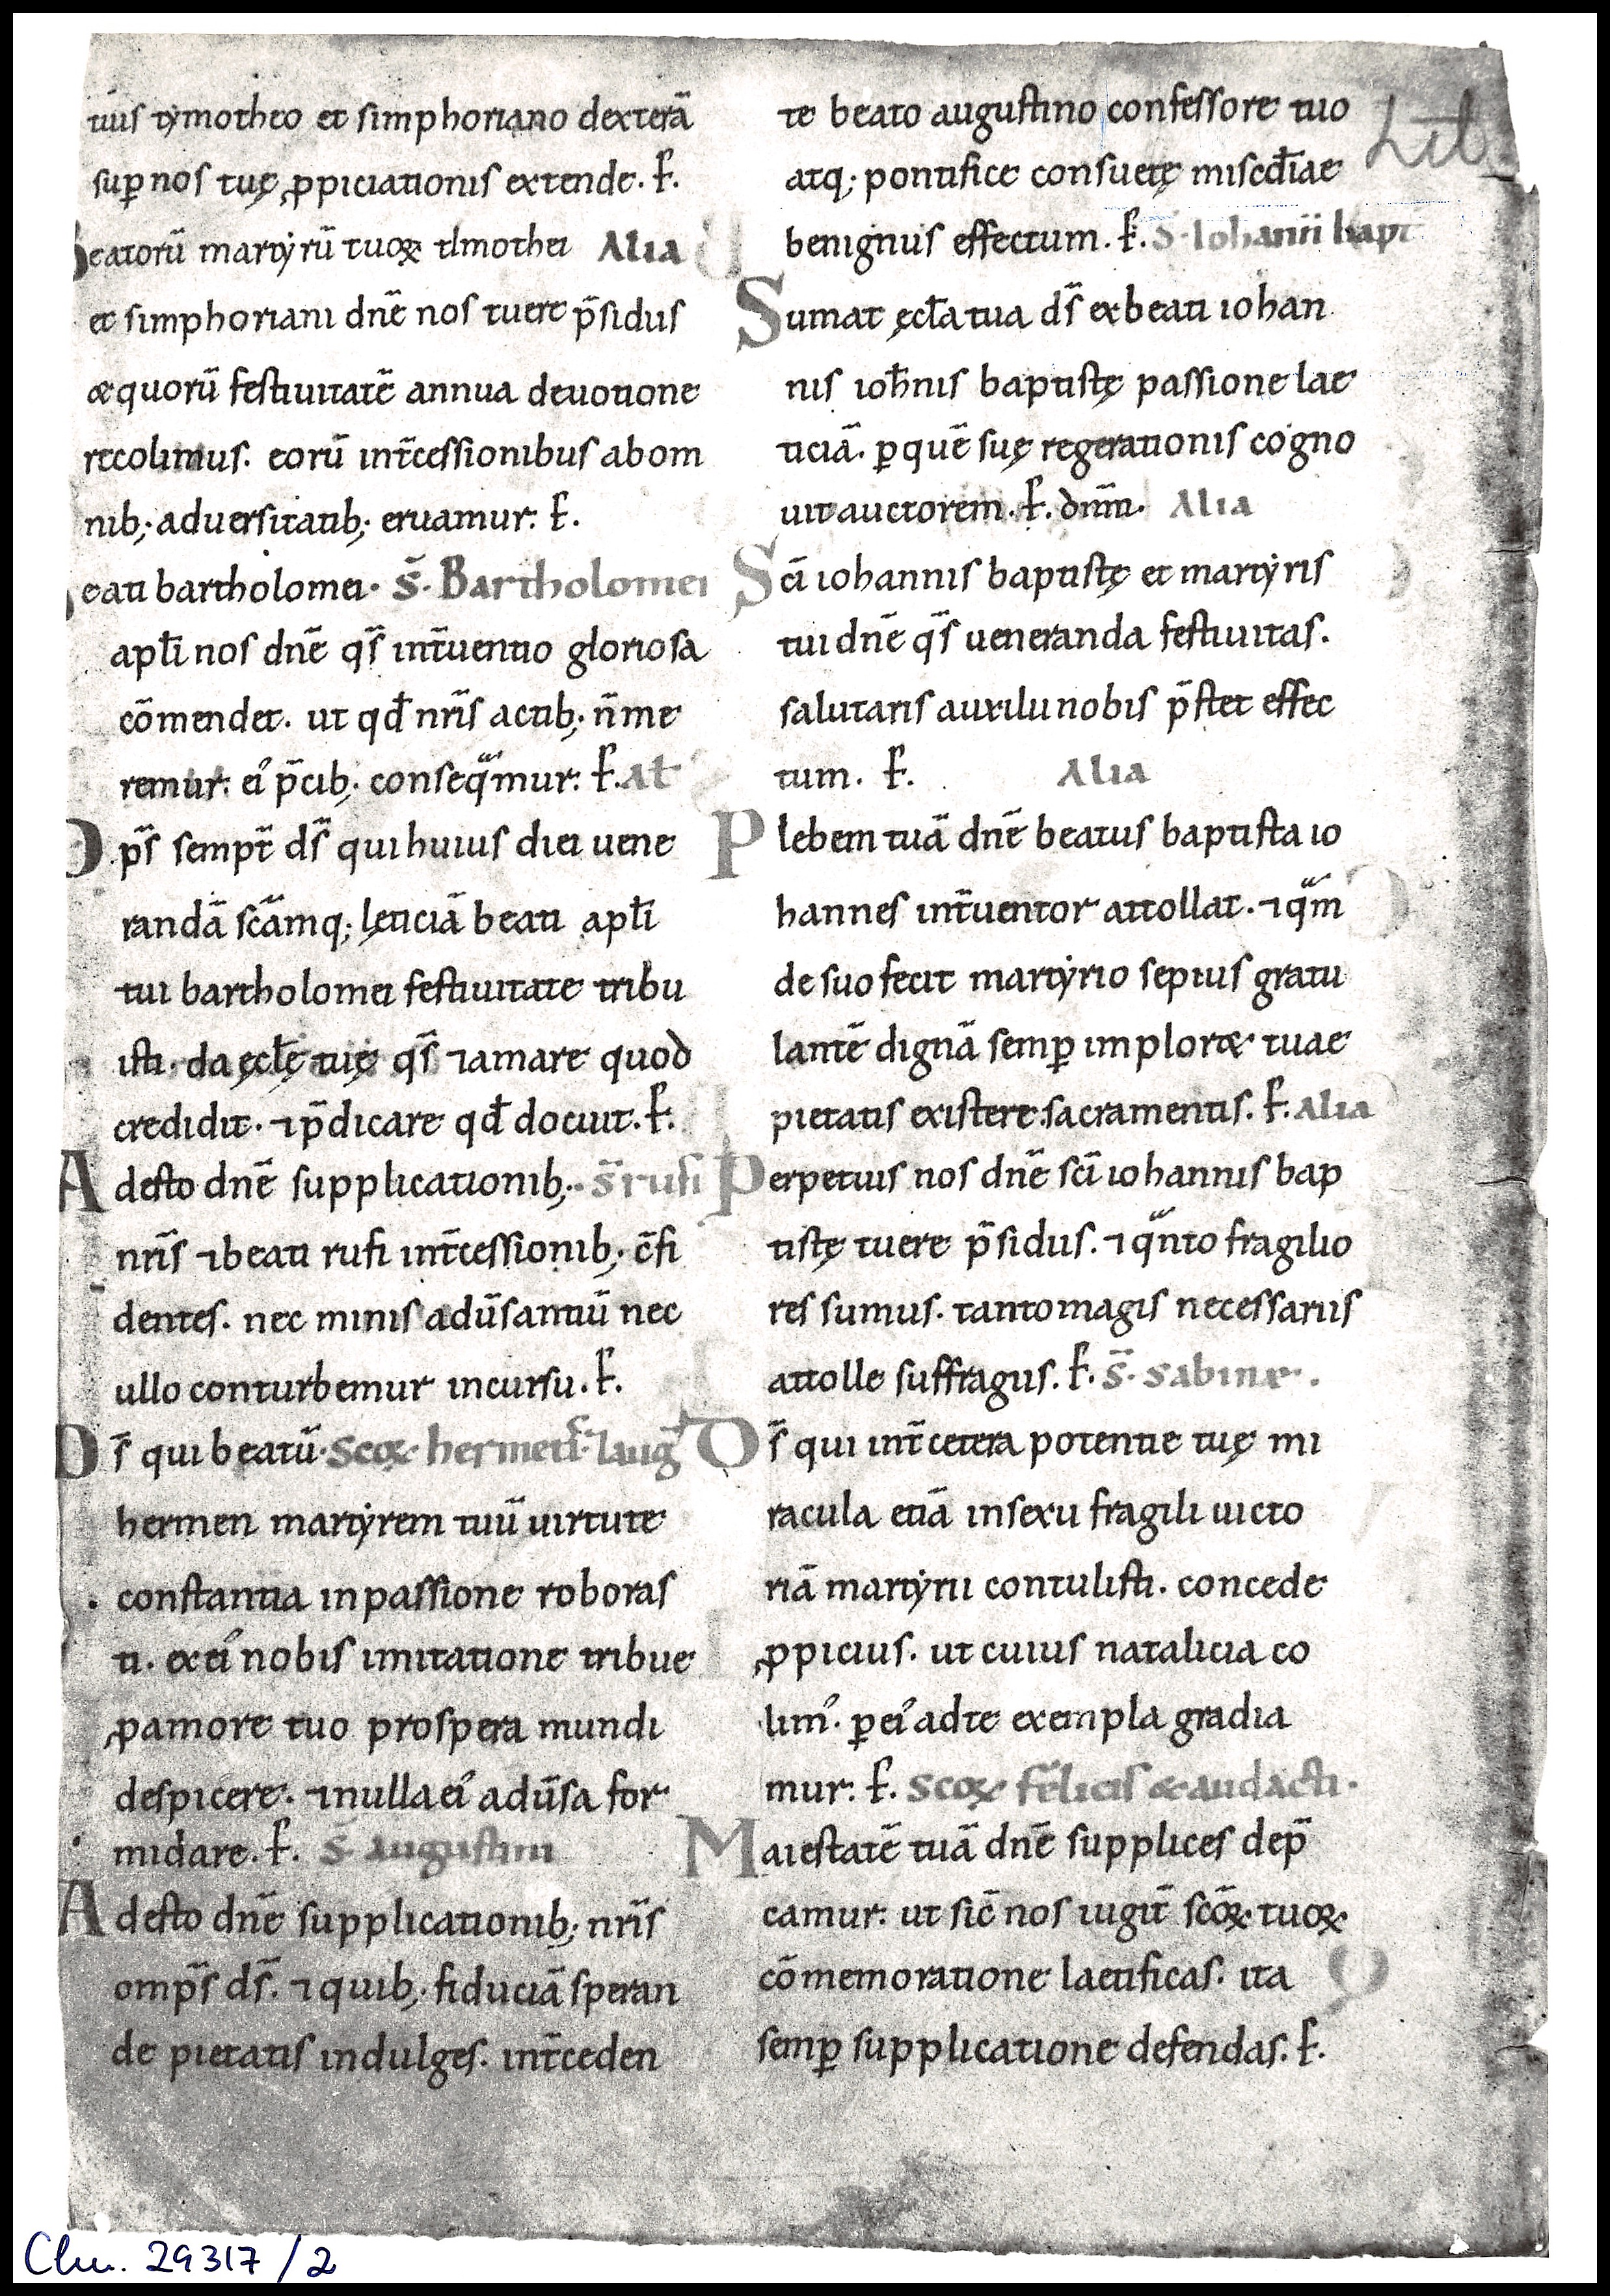 tuis tymotheo et simphoriano dexterā
sup̄ nos tuę ꝓpiciationis extende. P̄.
Beatorū martyrū tuoꝝ tImothei Alia
et simphoriani dnē nos tuere p̄sidiis
& quorū festiuitatē annua deuotione
recolimus. eorū int̄cessionibus ab om
nib; aduersitatib; eruamur. P̄.
Beati bartholomei. S̄. Bartholomei
apl̄i nos dnē qs̄ int̄uentio gloriosa
cōmendet. ut qđ nrīs actib; n̄ me
remur. ei᾿ p̄cib; conseqͣmur. P̄. Al̄
Op̄s semp̄t ds̄ qui huius diei uene
randā scāmq; lętıciā beati apl̄i
tui bartholomei festiuitate tribu
isti. da ęcl̄ę tuę qs̄ ⁊ amare quod
credidit. ⁊ p̄dicare qđ docuit. P̄.
Adesto dnē supplicationib; S̄ rufi
nrīs ⁊ beati rufi int̄cessionib; c̄fi
dentes. nec minis adūsantiū nec
ullo conturbemur incursu. P̄.
Ds̄ qui beatū. Scoꝝ hermetī
hermen martyrem tuū uirtute
constantia in passione roboras
ti. ex ei᾿ nobis imitatione tribue
ꝓ amore tuo prospera mundi
despicere. ⁊ nulla ei᾿ adūsa for
midare. P̄. S̄ augustini
Adesto dnē supplicationib; nrīs
omp̄s ds̄. ⁊ quib; fiduciā speran
de pietatis indulges. int̄ceden
te beato augustino confessore tuo
atq; pontifice consuetę miscđiae
benignus effectum. P̄. S̄. Iohanii bapt
Lit
Sumat ęcl̄a tua ds̄ ex beati iohan
nis ioh̄nis baptistę passione lae
ticiā. ꝑ quē suę regerationis cogno
uit auctorem. P̄. dnm̄. Alia
Scī iohannis baptistę et martyris
tui dnē qs̄ ueneranda festiuitas.
salutaris auxilii nobis p̄stet effec
tum. P̄. Alia
Plebem tuā dnē beatus baptista io
hannes int̄uentor attollat. ⁊ qͣm
de suo fecit martyrio sepius gratu
lantē dignā semꝑ implor& tuae
pietatis existere sacramentis. P̄. Alia
Perpetuis nos dnē scī iohannis bap
tistę tuere p̄sidiis. ⁊ qͣnto fragilio
res sumus. tanto magis necessariis
attolle suffragiis. P̄. S̄. Sabinę.
Ds̄ qui int̄ cetera potentie tuę mi
racula etiā in sexu fragili uicto
riā martyrii contulisti. concede
ꝓpicius. ut cuius natalicia co
lim᾿. ꝑ ei᾿ ad te exempla gradia
mur. P̄. Scoꝝ felicis & audacti.
Maiestatē tuā dnē supplices dep̄
camur. ut sic̄ nos iugit̄ scōꝝ tuoꝝ
cōmemoratione laetificas. ita
semꝑ supplicatione defendas. P̄.
Clm. 29317/2